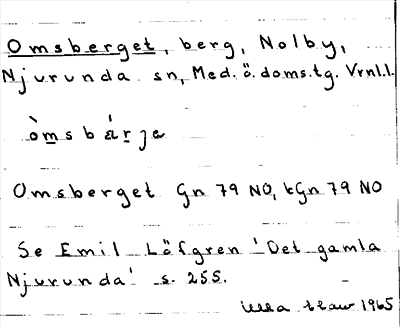 Omsberget, berg, Nolby,
Njurunda sn, Med. ö. doms.tg. Vrnl.l.
òmsbárja
Omsberget Gn 79 NO, tGn 79 NO
Se Emil Löfgren 'Det gamla
Njurunda' s. 255.
1965